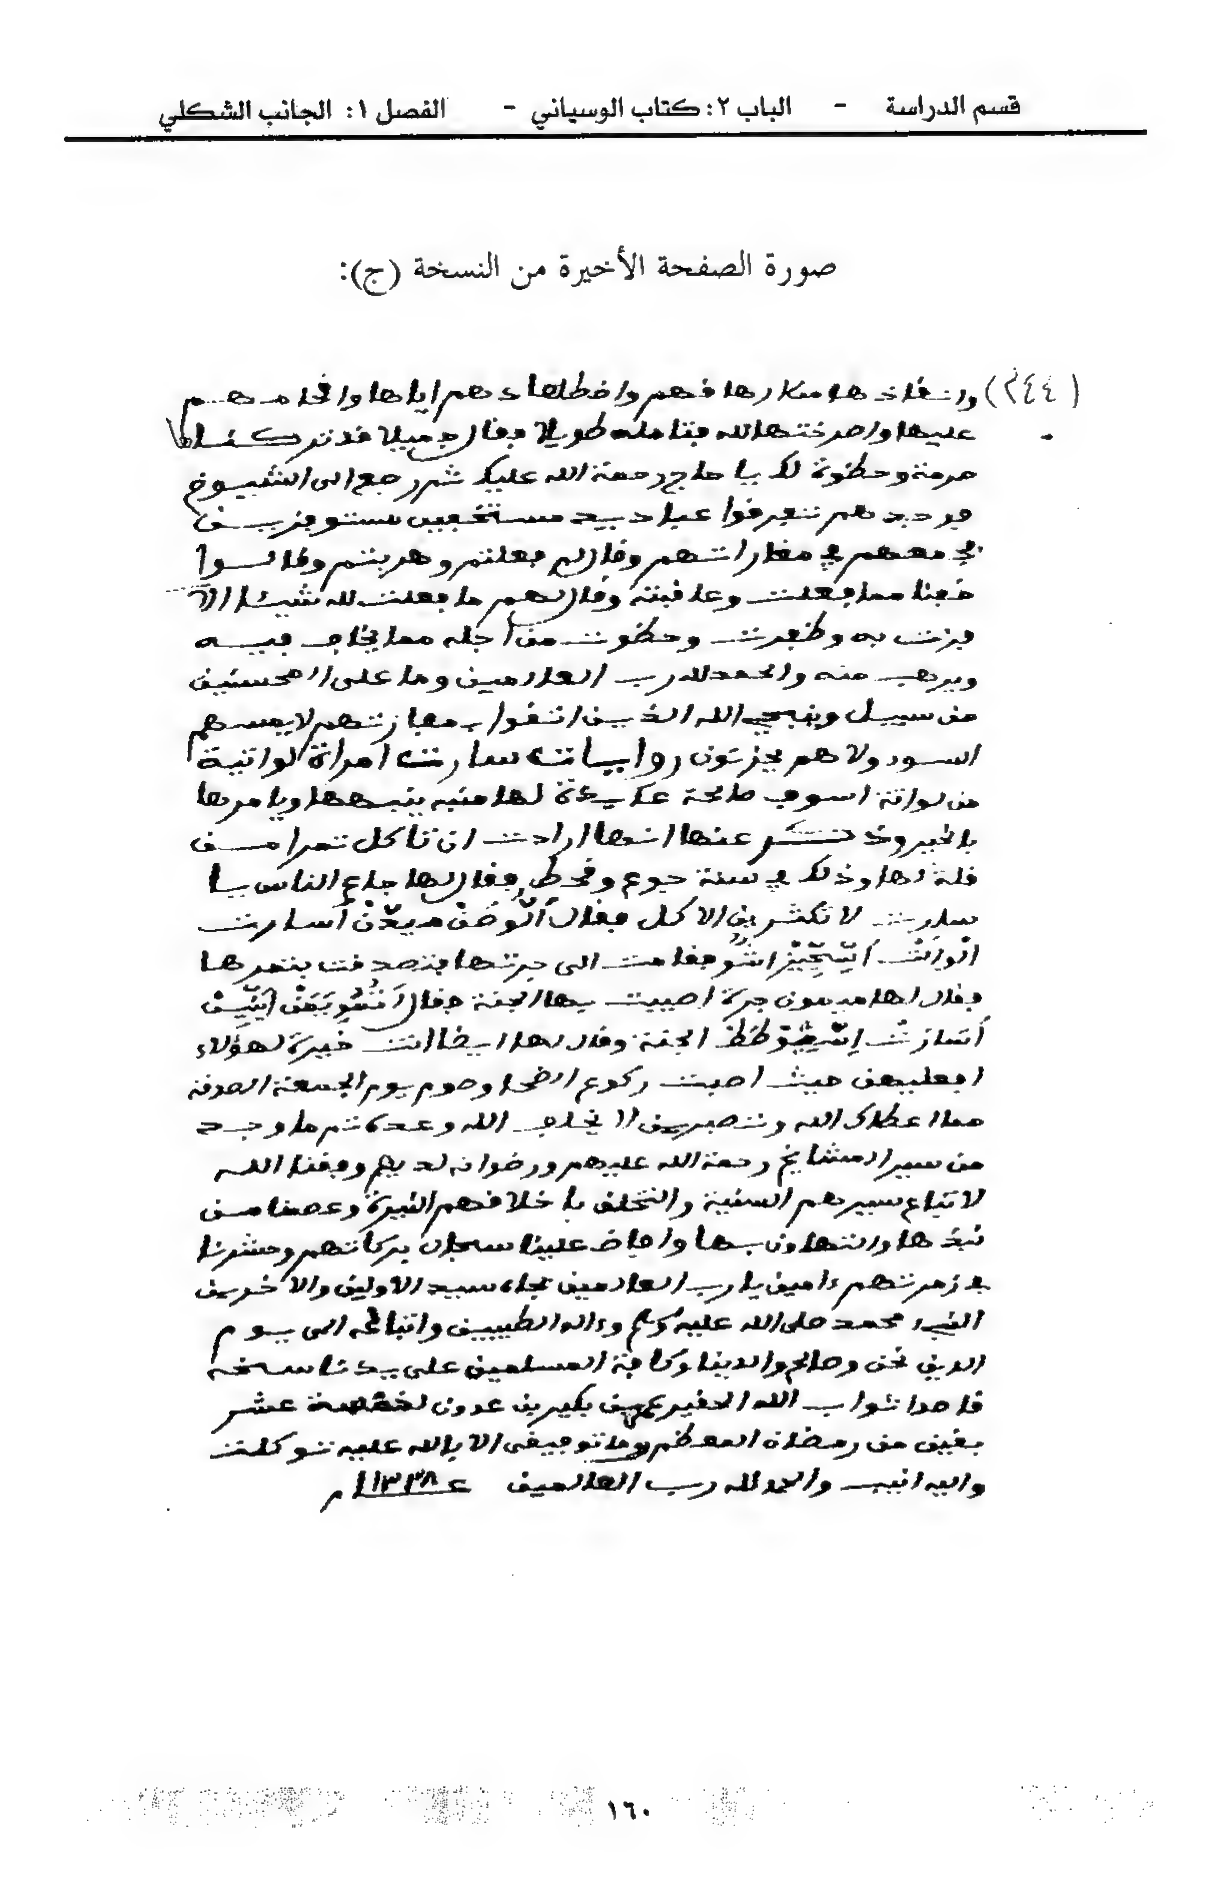 قسم الدراسة - الباب ٢: كتاب الوسياني - الفصل ١: الجانب الشكلي
صورة الصفحة الأخيرة من النسخة (ج):
(٢٤٤)
عليها وامرختها لله فتامله طويلا فقال جميلا قد تركت
حرمة وحظوة لك يا حاج رحمة الله عليك ثم رجع الى الشيوخ
فوجدهم تفرقوا عباديد مستخفيين مستوفزين
في معهم في مغاراتهم وقال لهم فعلتم وهربتم وقالوا
خفنا مما فعلت وعاقبته وقال لهم ما فعلت لله شيئا الا
فزت به وظفرت وحظوت من أجله مما يخاف فيه
ويرهب منه والحمد لله رب العالمين وما على المحسنين
من سبيل وينجي الله الذين اتقوا بمفازتهم لا يمسهم
السوء ولا هم يحزنون روايات سارت امراة لواتية
من لواتة اسوف صالحة عابدة لها منبه ينبهها ويامرها
بالخير وذكر عنها انها ارادت ان تاكل تمرا من
قلة لها وذلك في سنة جوع وقحط فقال لها جاع الناس يا
سارت لا تكثرين الاكل فقال
فقامت الى جرتها فتصدقت بتمرها
وقال لها ميمون جرة اصبت بها الجنة فقال
الجنة وقال لها ايضا انت خيرة لهؤلاء
افعليهن حيث اصبت ركوع الضحا وصوم يوم الجمعة الصدقة
مما اعطاك الله وتصبرين لا يخلف الله وعده تم ما وجد
من سير المشايخ رحمة الله عليهم ورضوانه لديهم وفقنا الله
لاتباع سيرهم السنية والتخلق باخلاقهم النيرة وعصمنا من
نبذها والتهاون بها وافاض علينا سجال بركاتهم وحشرنا
في زمرتهم ءامين يا رب العالمين بجاه سيد الاولين والاخرين
النبيء محمد صلى الله عليه وسلم وءاله الطيبين واتباعه الى يوم
الدين نحن وصالح والدينا وكافة المسلمين على يد ناسخه
قاصدا ثواب الله الحقير بكير بن عدون لخمسة عشر
بقين من رمضان المعظم وما توفيقي الا بالله عليه توكلت
واليه انيب والحمد لله رب العالمين ١٣٣٨
١٦٠